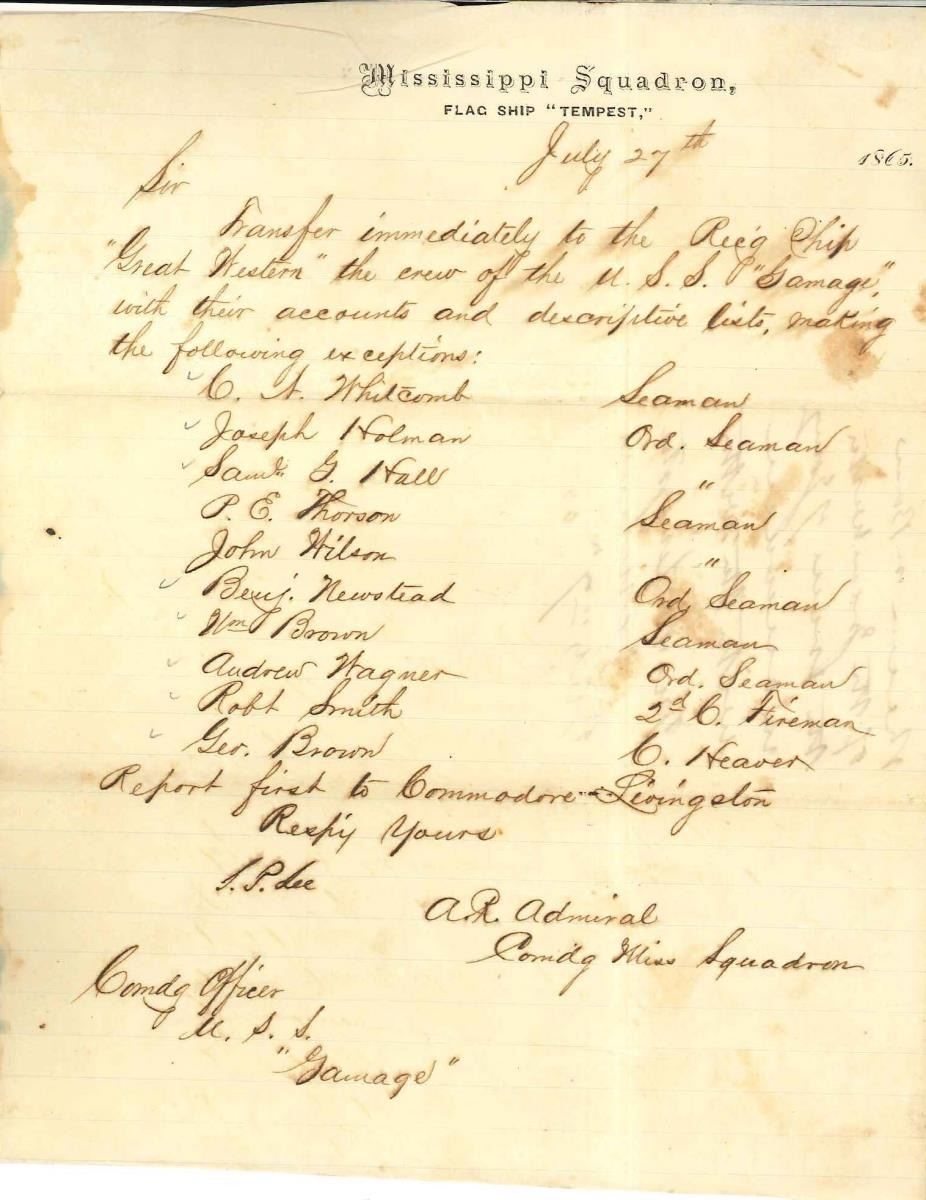 Mississippi Squadron,
FLAG SHIP "TEMPEST,"
July 27th 1865.
Sir
Transfer immediately to the Rec'g Ship
"Great Western" the crew of the U. S. S. "Gamage",
with their accounts and descriptive lists, making
the following exceptions:
C. A. Whitcomb Seaman
Joseph Holman Ord. Seaman
Saml. G. Hall "
P. E. Thorson Seaman
John Wilson "
Benj. Newstead Ord. Seaman
Wm Brown Seaman
Andrew Wagner Ord. Seaman
Robt Smith 2d C. Fireman
Geo. Brown C. Heaver
Report first to Commodore Livingston
Resp'y Yours
S. P. Lee
A. R. Admiral
Comdg Miss Squadron
Comdg Officer
U. S. S.
"Gamage"